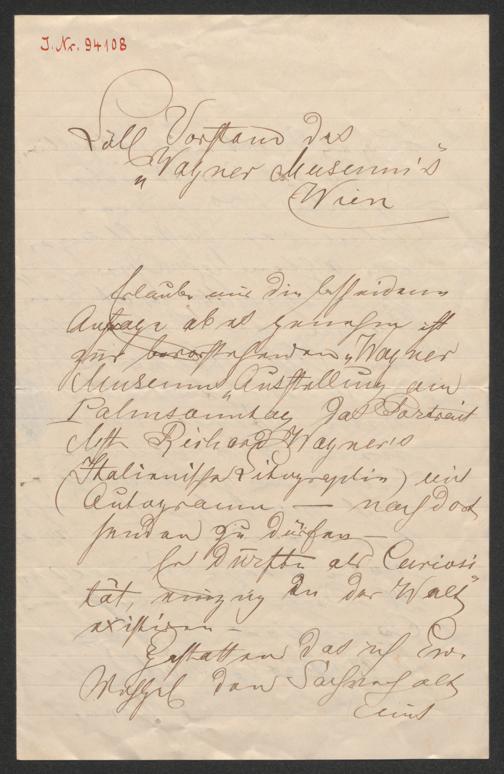 J. Nr. 94108
Löbl Vorstand des
„Wagner Museum's"
Wien
Erlaube mir die bescheidene
Anfrage ob es genehm ist
zur bevorstehenden „Wagner
Museum" Ausstellung am
Palmsonntag das Portrait
Mtr Richard Wagner's
(Italienische Litographie) mit
Autogramm — nach dort
senden zu dürfen —
Es dürfte als Curiosi
tät, einzig in der Welt
existiren —
Gestatten das ich Ew.
den Sachverhalt